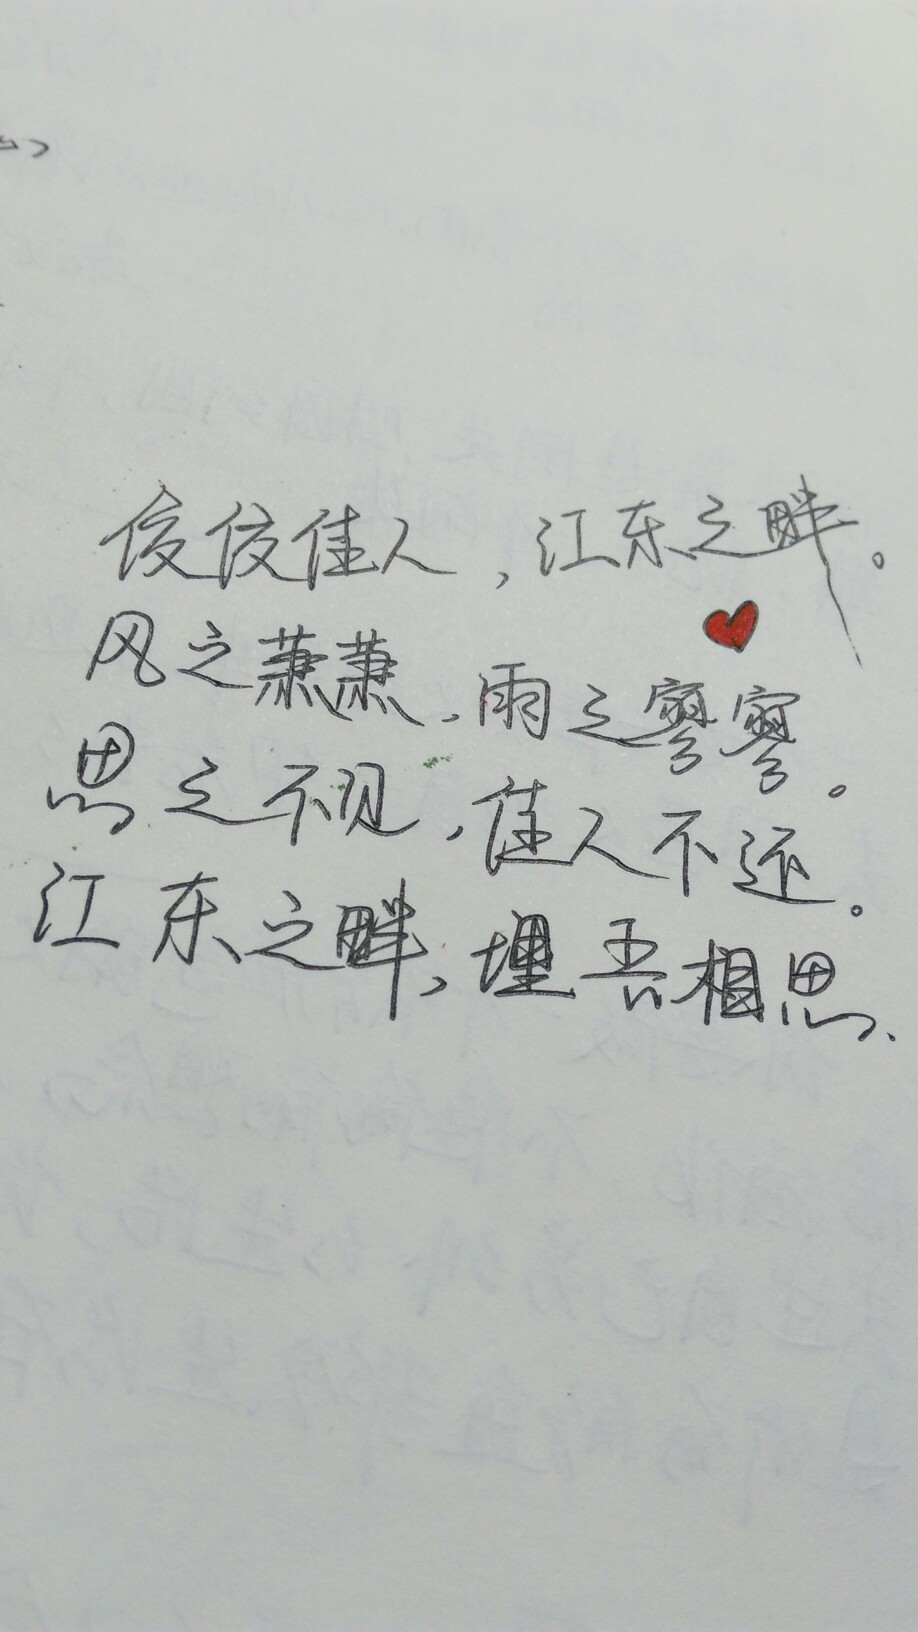 佼佼佳人，江东之畔。
风之萧萧，雨之寥寥。
思之不见，佳人不还。
江东之畔，埋吾相思、